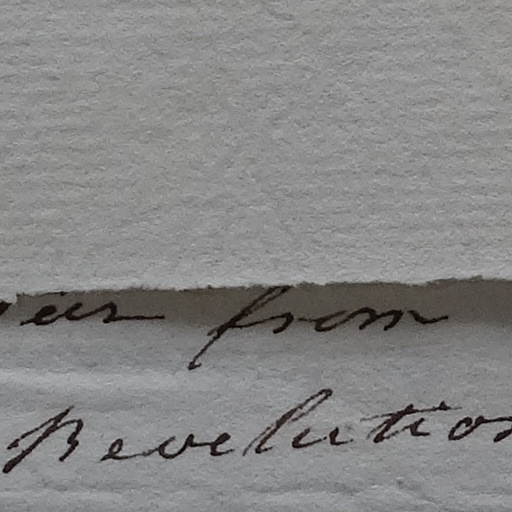 from
Revolution